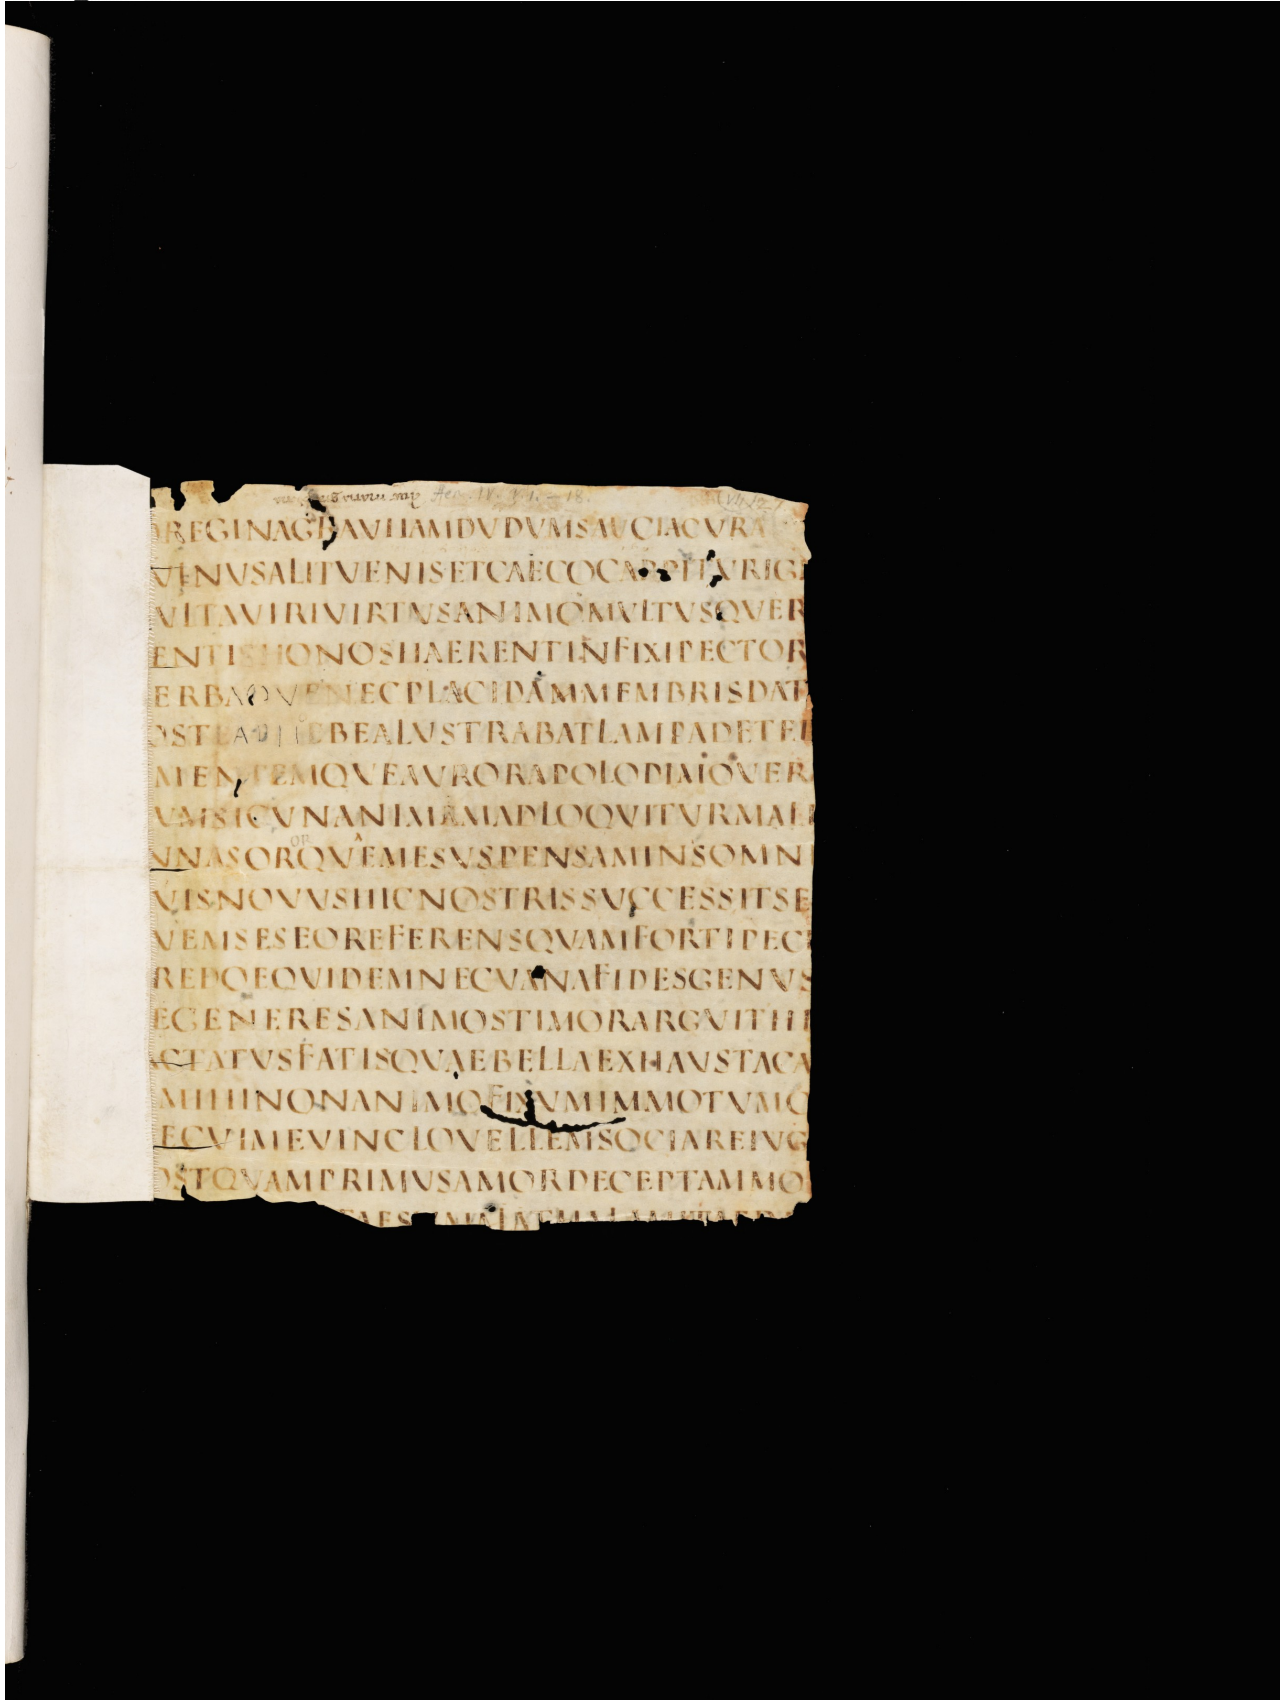 Aen. IV. v. 1. – 18.
REGINAGRAVIIAMDVDVMSAVCIACVRA
VENVSALITVENISETCAECOCARPITVRIGN
VLTAVIRIVIRTVSANIMOMVLTVSQVER
ENTISHONOSHAERENTINFIXIPECTOR
ERBAQVENECPLACIDAMMEMBRISDAT
OSTERAPHOEBEALVSTRABATLAMPADETER
MENTEMQVEAVRORAPOLODIMOVERA
VMSICVNANIMAMADLOQVITVRMALE
NNASORQVEMESVSPENSAMINSOMNI
VISNOVVSHICNOSTRISSVCCESSITSE
VEMSESEOREFERENSQVAMFORTIPEC
REDOEQVIDEMNECVANAFIDESGENVS
EGENERESANIMOSTIMORARGVITHE
ACTATVSFATISQVAEBELLAEXHAVSTACA
MIHINONANIMOFIXVMIMMOTVMQ
ECVIMEVINCLOVELLEMSOCIAREIVG
OSTQVAMPRIMVSAMORDECEPTAMMO